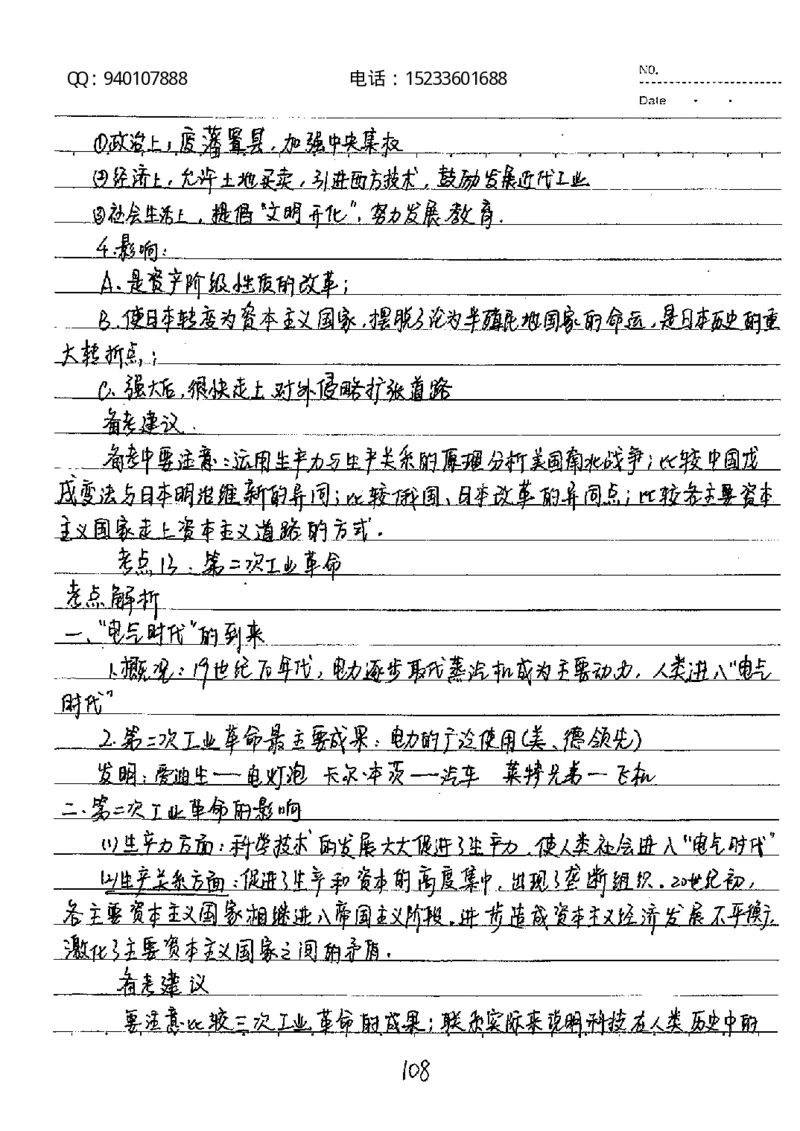 QQ：940107888 电话：15233601688 NO.
Date
①政治上，废藩置县，加强中央集权
②经济上，允许土地买卖，引进西方技术，鼓励发展近代工业
③社会生活上，提倡“文明开化”，努力发展教育．
4.影响：
A．是资产阶级性质的改革；
B．使日本转变为资本主义国家，摆脱了沦为半殖民地国家的命运，是日本历史的重
大转折点；
C．强大后，很快走上对外侵略扩张道路
备考建议
备考中要注意：运用生产力与生产关系的原理分析美国南北战争；比较中国戊
戌变法与日本明治维新的异同；比较俄国、日本改革的异同点；比较各主要资本
主义国家走上资本主义道路的方式．
考点13、第二次工业革命
考点解析
一、“电气时代”的到来
1.概况：19世纪70年代，电力逐步取代蒸汽机成为主要动力，人类进入“电气
时代”
2.第二次工业革命最主要成果：电力的广泛使用（美、德领先）
发明：爱迪生——电灯泡 卡尔·本茨——汽车 莱特兄弟—飞机
二、第二次工业革命的影响
(1)生产力方面：科学技术的发展大大促进了生产力，使人类社会进入“电气时代”
(2)生产关系方面：促进了生产和资本的高度集中，出现了垄断组织．20世纪初，
各主要资本主义国家相继进入帝国主义阶段．进步造成资本主义经济发展不平衡，
激化了主要资本主义国家之间的矛盾．
备考建议
要注意比较三次工业革命的成果；联系实际来说明科技在人类历史中的
108